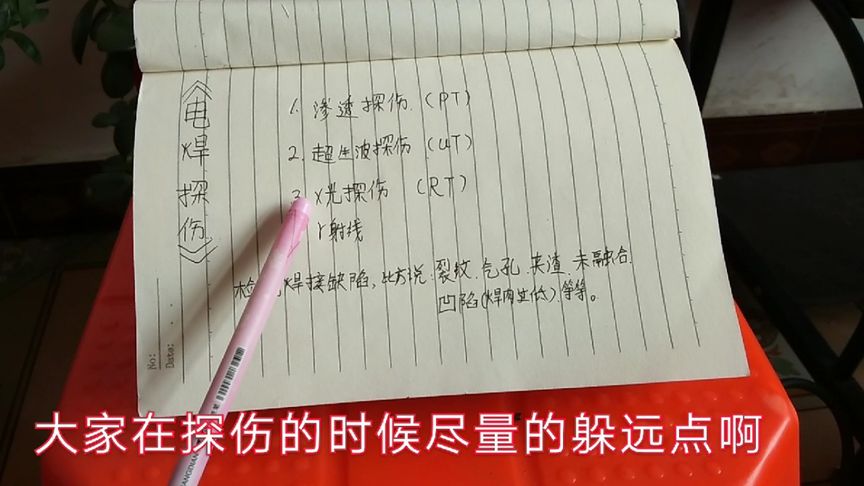 《电焊探伤》
1. 渗透探伤. (PT)
2. 超生波探伤 (UT)
3. X光探伤 (RT)
r射线
焊接缺陷, 比方说: 裂纹. 气孔. 夹渣. 未融合.
凹陷(焊肉过低) 等等。
No:
Date:
大家在探伤的时候尽量的躲远点啊